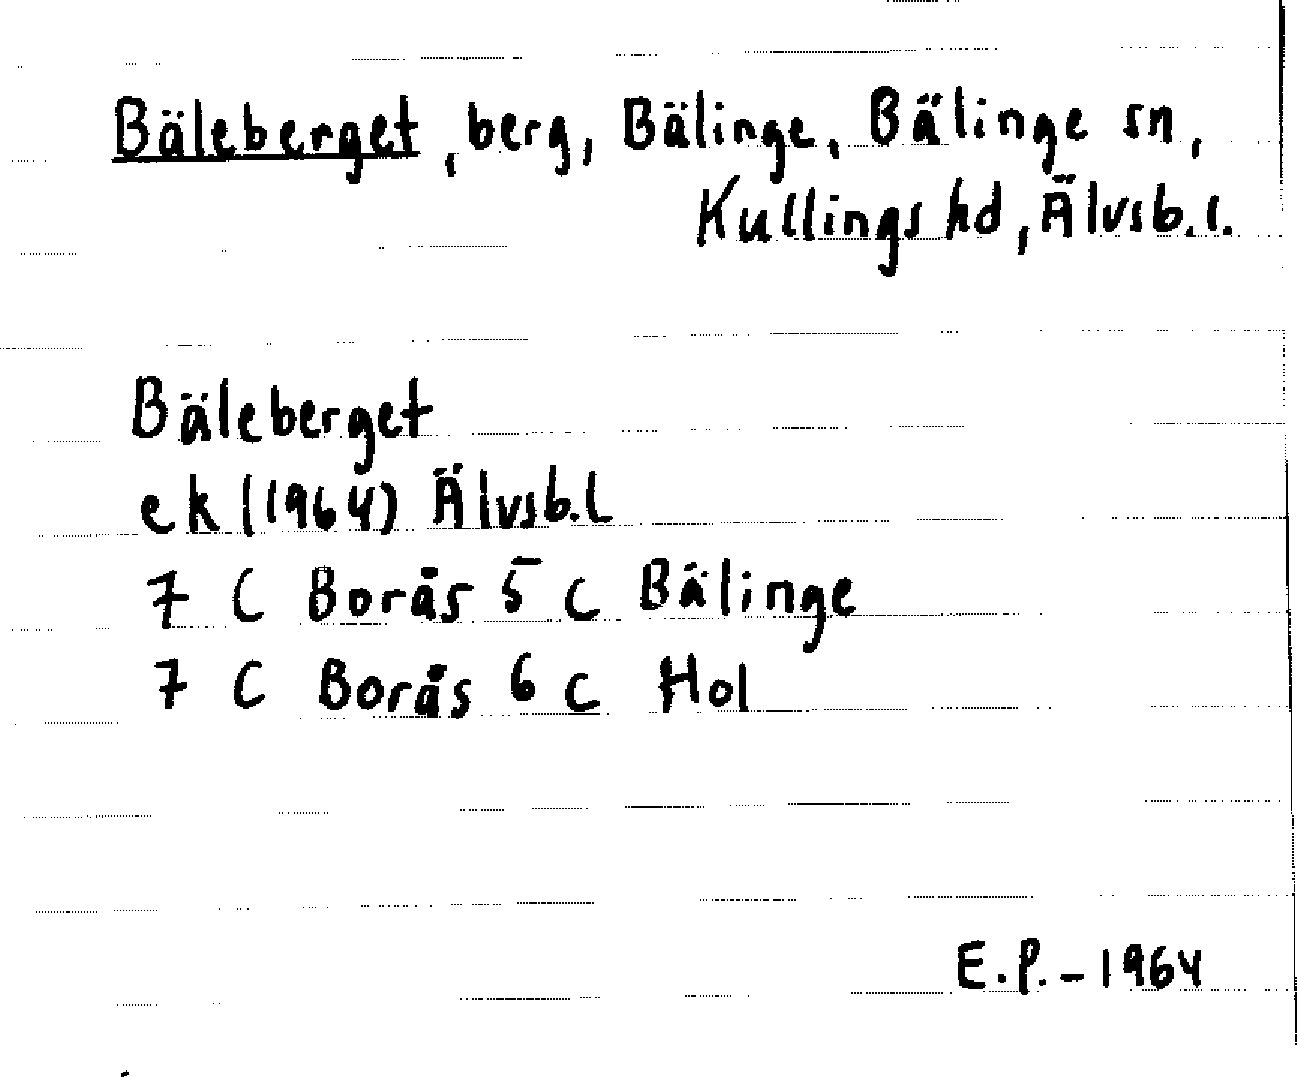 Bäleberget, berg, Bälinge, Bälinge sn,
Kullings hd, Älvsb.l.
Bäleberget
ek (1964) Älvsb.l
7 C Borås 5 c Bälinge
7 C Borås 6 c Hol
E.P. - 1964